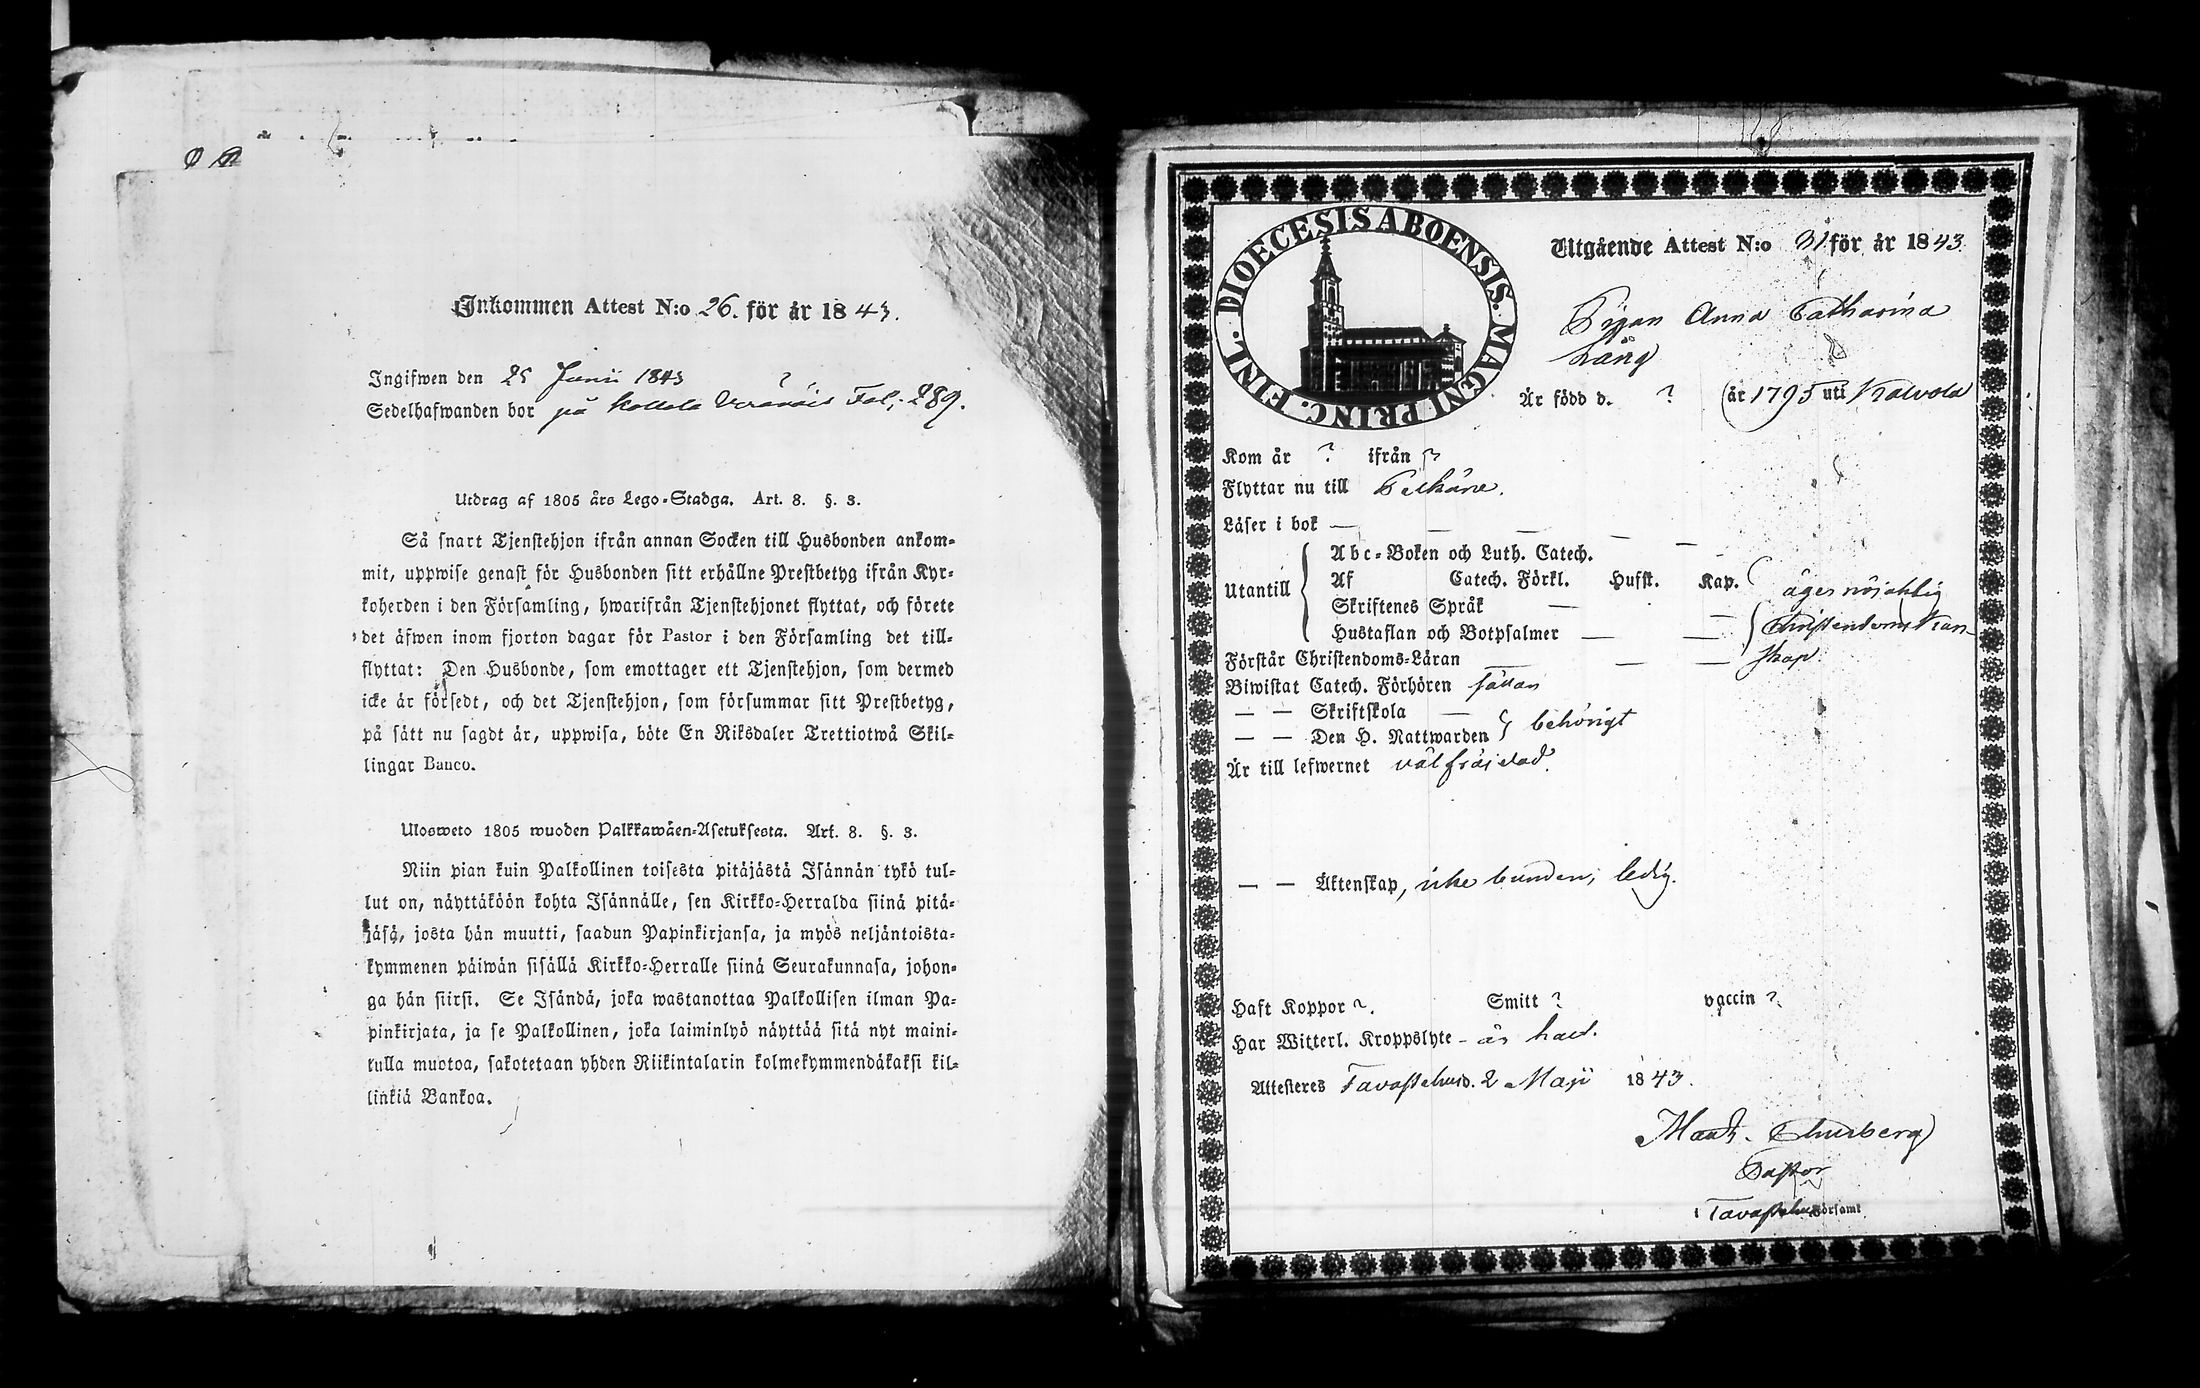 Inkommen Attest N:o 26. för år 1843.
Ingifwen den 25 Junii 1843
Sedelhafwanden bor på Fol. 289.
Utdrag af 1805 års Lego-Stadga. Art. 8. §. 3.
Så snart Tjenstehjon ifrån annan Socken till Husbonden ankom-
mit, uppwise genast för Husbonden sitt erhållne Prestbetyg ifrån Kyr-
koherden i den Församling, hwarifrån Tjenstehjonet flyttat, och förete
det äfwen inom fjorton dagar för Pastor i den Församling det till-
flyttat: Den Husbonde, som emottager ett Tjenstehjon, som dermed
icke är försedt, och det Tjenstehjon, som försummar sitt Prestbetyg,
på sätt nu sagdt är, uppwisa, böte En Riksdaler Trettiotwå Skil-
lingar Banco.
Ulosweto 1805 wuoden Palkkawäen-Asetuksesta. Art. 8. §. 3.
Niin pian kuin Palkollinen toisesta pitäjästä Isännän tykö tul-
lut on, näyttäköön kohta Isännälle, sen Kirkko-Herralda siinä pitä-
jäsä, josta hän muutti, saadun Papinkirjansa, ja myös neljäntoista-
kymmenen päiwän sisällä Kirkko-Herralle siinä Seurakunnasa, johon-
ga hän siirsi. Se Isändä, joka wastanottaa Palkollisen ilman Pa-
pinkirjata, ja se Palkollinen, joka laiminlyö näyttää sitä nyt maini-
tulla muotoa, sakotetaan yhden Riikintalarin kolmekymmendäkaksi kil-
linkiä Bankoa.
DIOECESIS ABOENSIS. MAGNI PRINC. FINL.
Utgående Attest N:o 31 för år 1843.
Pigan Anna Catharina
Lång
Är född d. ? år 1795 uti Kalvola
Kom år ? ifrån ?
Flyttar nu till Pelkäne.
Läser i bok — — — — —
Utantill
Abc-Boken och Luth. Catech.
Af Catech. Förkl. Husst. Kap. äger nöjaktig
Skriftenes Språk — —
Hustaflan och Botpsalmer — — Christendoms Kun-
Förstår Christendoms-Läran — — — skap
Biwistat Catech. Förhören sällan
— — Skriftskola —
— — Den H. Nattwarden behörigt
Är till lefwernet välfräjdad.
— — Äktenskap, icke bunden; ledig.
Haft Koppor ?. Smitt ? vaccin ?
Har Witterl. Kroppslyte - är halt.
Attesteres Tavastehus. 2 Maji 1843.
Thurberg
Pastor
Tavastehus Församl.